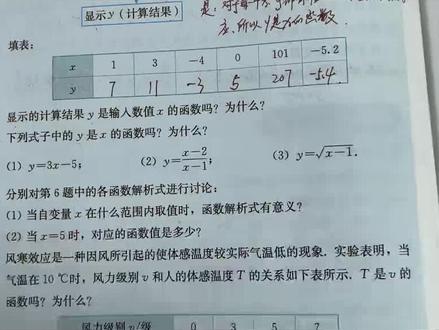 显示y(计算结果)
是,对于每一个
应,所以y是x的函数.
填表:
x 1 3 -4 0 101 -5.2
y 7 11 -3 5 207 -5.4
显示的计算结果 y 是输入数值 x 的函数吗?为什么?
下列式子中的 y 是 x 的函数吗?为什么?
(1) y=3x-5; (2) y=\frac{x-2}{x-1}; (3) y=\sqrt{x-1}.
分别对第 6 题中的各函数解析式进行讨论:
(1) 当自变量 x 在什么范围内取值时,函数解析式有意义?
(2) 当 x=5 时,对应的函数值是多少?
风寒效应是一种因风所引起的使体感温度较实际气温低的现象. 实验表明,当
气温在 10 ℃时,风力级别 v 和人的体感温度 T 的关系如下表所示. T 是 v 的
函数吗?为什么?
风力级别 v/级 0 3 5 7